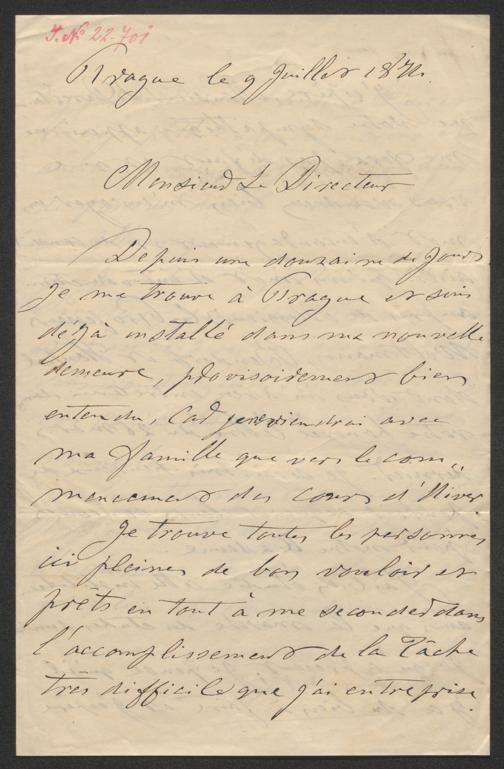 J. No 22-701
Prague le 9 Juillet 1874.
Monsieur Le Directeur
Depuis une douzaine de jours
je me trouve à Prague et suis
déjà installé dans ma nouvelle
demeure, provisoirement bien
entendu, car je reviendrai avec
ma famille que vers le com„
mencement des cours d'Hiver
Je trouve toutes les personnes
ici pleines de bon vouloir et
prêts en tout à me seconder dans
l'accomplissement de la Tâche
très difficile que j'ai entreprise.